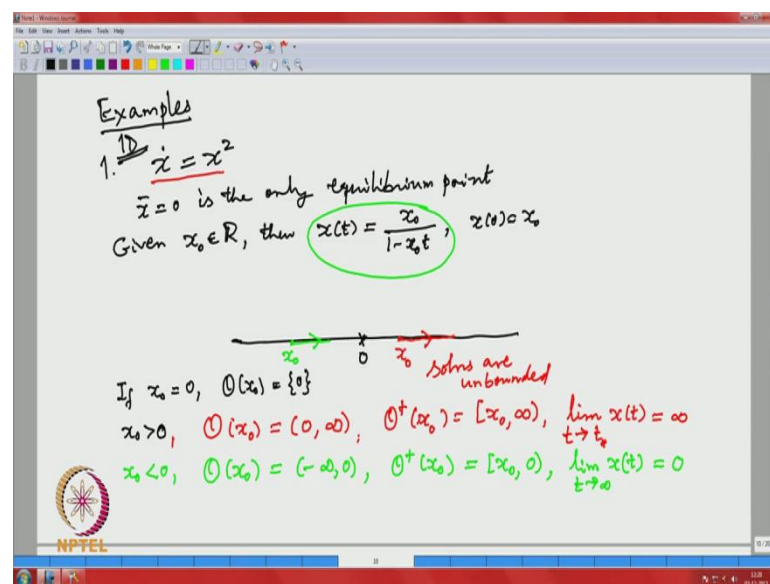 Note1 - Windows Journal
File Edit View Insert Actions Tools Help
Whole Page
B I
Examples
1. 1D ẋ = x²
x̄ = 0 is the only equilibrium point
Given x₀ ∈ R, then x(t) = x₀/(1-x₀t), x(0) = x₀
x₀ 0 x₀ solns are
unbounded
If x₀ = 0, O(x₀) = {0}
x₀ > 0, O(x₀) = (0, ∞), O⁺(x₀) = [x₀, ∞), lim x(t) = ∞
t→t*
x₀ < 0, O(x₀) = (-∞, 0), O⁺(x₀) = [x₀, 0), lim x(t) = 0
t→∞
NPTEL